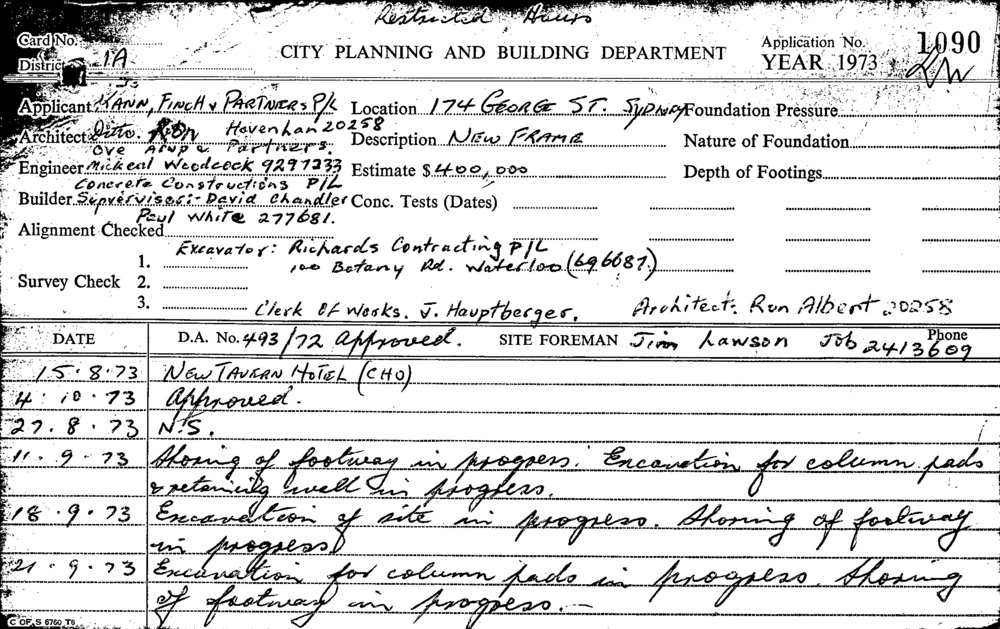 Restricted Hours
Card No.
District 1A
CITY PLANNING AND BUILDING DEPARTMENT
Application No. 1090
YEAR 1973
Applicant KANN, FINCH & PARTNERS P/L Location 174 GEORGE ST. SYDNEY Foundation Pressure
Architect Ditto. Ron Havenhan 20258 Description NEW FRAME Nature of Foundation
Ove Arup & Partners.
Engineer Micheal Woodcock 9297233 Estimate $ 400,000 Depth of Footings
Concrete Constructions P/L
Builder Supvervisor:- David Chandler Conc. Tests (Dates)
Paul White 277681.
Alignment Checked
Excavator: Richards Contracting P/L
1. 100 Botany Rd. Waterloo (696687)
Survey Check 2.
3. Clerk Of Works. J. Hauptberger. Architect: Ron Albert 20258
DATE D.A. No. 493/72 Approved. SITE FOREMAN Jim Lawson Job Phone 2413609
15.8.73 NEW TAVERN HOTEL (CHO)
4.10.73 Approved.
27.8.73 N.S.
11.9.73 Shoring of footway in progress. Excavation for column pads
& retaining wall in progress.
18.9.73 Excavation of site in progress. Shoring of footway
in progress
21.9.73 Excavation for column pads in progress. Shoring
of footway in progress.-
C OF S 5760 T6